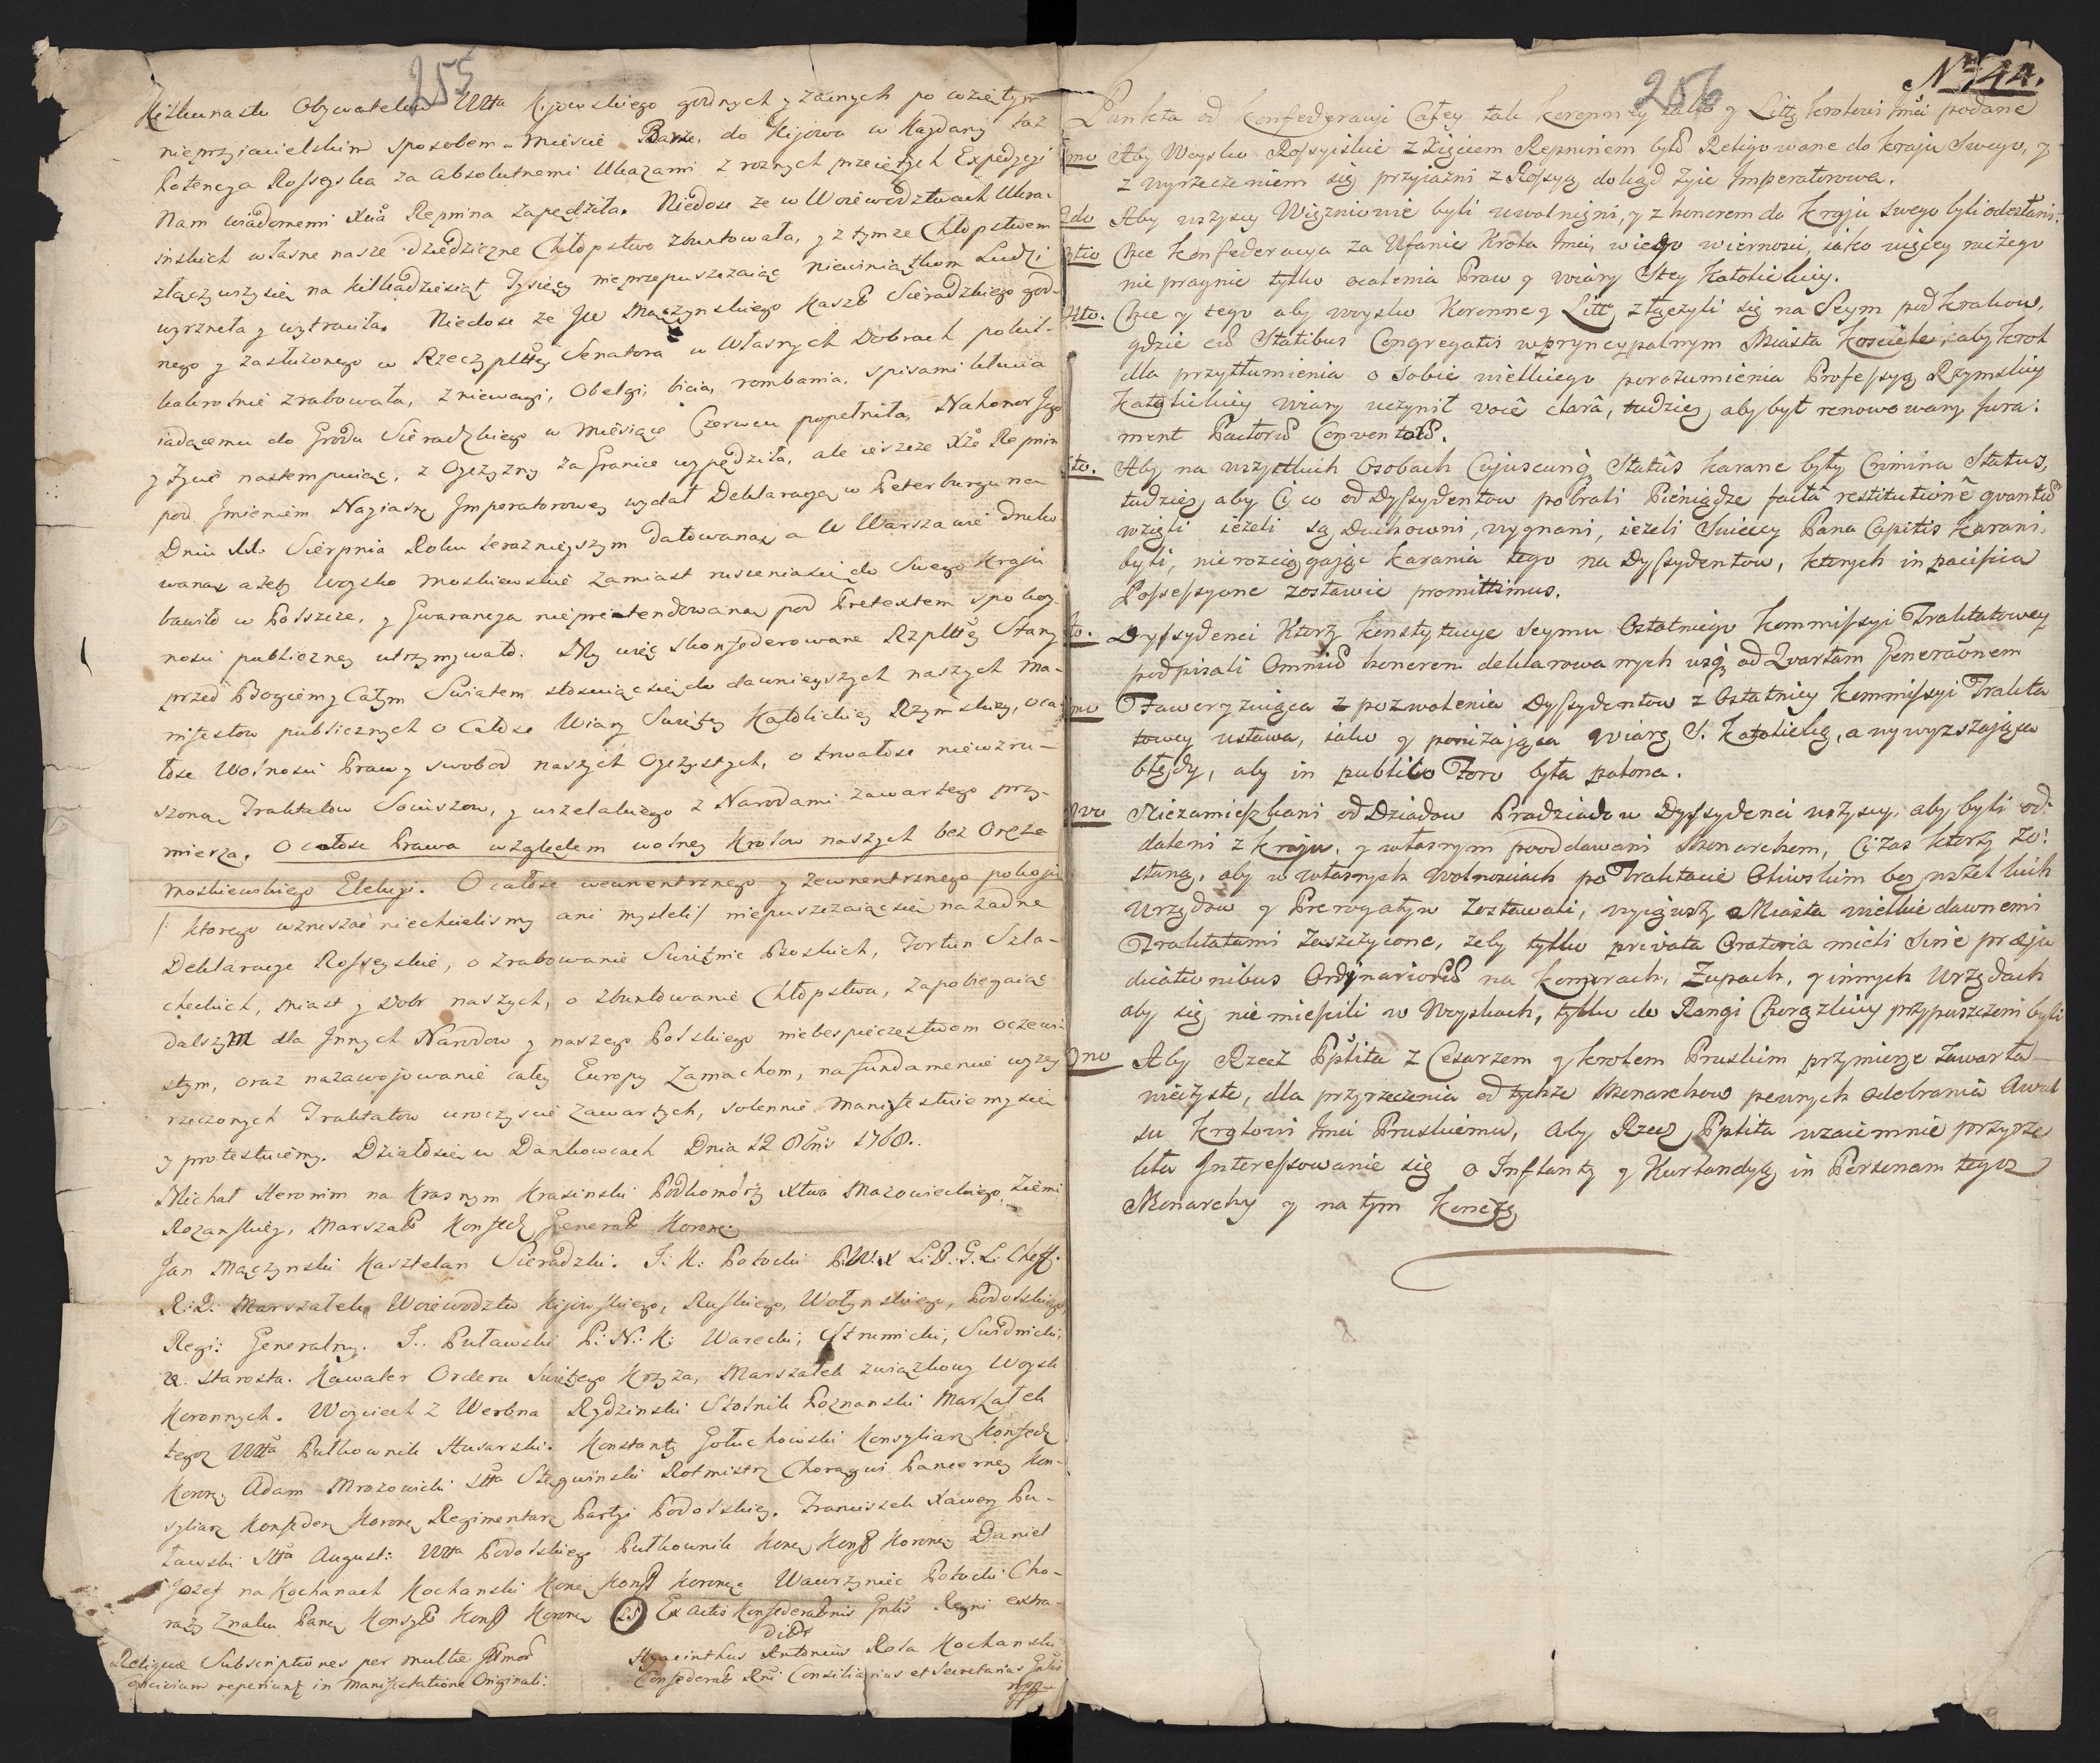 255
Kilkunastu Obywatelow Wttа Kijowskiego godnych y zacnych po wziętym
nieprzyiacielskim sposobem Miescie Barze, do Kijowa w Kaydany taż
Potencya Rossyiska za absolutnemi Ukazami z roznych przeciętych Expedycyi
Nam wiadomemi Xcia Repnina zapędziła. Niedosc ze w Woiewodztwach Ukra-
inskich własne nasze dziedziczne Chłopstwo zbuntowała, y z tymze Chłopstwem
złączywszysię na kilkadziesiąt Tysięcy nieprzepuszczaiąc niewiniątkom Ludzi
wyrzneła y wytraciła. Niedosc że JW Mączynskiego Kaszt Sieradzkiego god-
nego y zasłużonego w Rzeczypltey Senatora w Własnych Dobrach pokil-
kakrotnie zrabowała, zniewagi, Obelgi, bicia, rombania, spisami kłucia
iadącemu do Grodu Sieradzkiego w Miesiącu Czerwcu popełniła, Nahonor Jego
y życie nastempuiąc, z Oyczyzny za Granice wypędziła, ale ieszcze Xże Repnin
pod Jmieniem Nayiasn Jmperatorowey wydał Deklaracyą w Peterburgu na
Dniu 11. Sierpnia Roku terazniejszym datowaną a w Warszawie druko
waną ażeby Woysko moskiewskie zamiast ruszeniasię do Swego Kraju
bawiło w Polszcze, y Gwarancya niepretendowana pod Pretextem spokoy-
nosci publiczney utrzymywało. My więc Skonfederowane Rzpltey Stany
przed Bogiem y Całym Swiatem stosuiącsię do dawnieyszych naszych Ma-
nifestow publicznych o Całosc Wiary Swiętey Katolickiey Rzymskiey, o ca-
łosc Wolnosci Praw y swobod naszych Oyczystych, o trwałosc niewzru-
szoną Traktatow Sowiszow, y wszelakiego z Narodami zawartego przy-
mierza. O całosc Prawa względem wolney Krolow naszych bez Oręża
moskiewskiego Elekcyi. O całosc wewnentrznego y zewnentrznego pokoju
/: ktorego wzruszać niechcielismy ani mysleli/ niepuszczaiącsię na żadne
Deklaracye Rossyiskie, o zrabowanie Swiątnic Boskich, Fortun Szla-
checkich, miast y Dobr naszych, o zbuntowanie Chłopstwa, zapobiegaiąc
dalszym dla Jnnych Narodow y naszego Polskiego niebespieczęstwom oczewi-
stym, oraz nazawojowanie całey Europy zamachom, na fundamencie wyzey
rzeczonych Traktatow uroczyscie zawartych, solennie manifestuiemysię
y protestuiemy. Działosię w Dankowcach Dnia 12 8bris 1768.
Michał Heronim na Krasnym Krasinski Podkomorzy Xtwa Mazowieckiego, Ziemi
Rozanskiey, Marszałł Konfedz Generał Koronn
Jan Mączynski Kasztelan Sieradzki. J: K: Potocki P:W:X L:D: G:L: Cheff.
R:D: Marszałek Woiewodztw Kijowskiego, Ruskiego, Wołynskiego, Podolskiego,
Regi: Generalny. J. Puławski P: N: K: Warecki, Strumicki, Swidnicki,
&. Starosta. Kawaler Orderu Swiętego Krzyza, Marszałek związkowy Woysk
Koronnych. Woyciech z Werbna Rydzinski Stolnik Poznanski Marszałek
tegoz Wttа Pułkownik Husarski. Konstanty Gołuchowski Konsyliarz Konfedz
Koronn Adam Mrozowicki Stta Stęgwinski Rotmistrz Chorągwi Pancerney Kon-
syliarz Konfeder Koronn Regimentarz Partyi Podolskiey. Franciszek Xawery Pu-
ławski Stta August: Wttа Podolskiego Pułkownik Kons Konf Koronn Daniel
Jozef na Kochanach Kochanski Kons Konf Koronn Wawrzyniec Potocki Cho-
rąży Znaku Panc Konsyl Konf Koronn LS Ex Actis Konfederatnis Gnlis Regni extra-
ditt
Reliquae Subscriptiones per multae Jllmor
Officium reperiunt in Manifestatione Originali:
Hyacinthus Antonius Rola Kochanski
Confederat Rni Consiliarius et Secretarius Gnlis
mpp
256
N: 44.
Punkta od Konfederacyi Całey tak Koronney iako y Litt Krolowi Jmci podane
1mo Aby Woysko Rossyiskie z Xięciem Repninem było Religowane do kraju Swego, y
z wyrzeczeniem się przyiazni z Rossyą dokąd żyie Jmperatorowa.
2do Aby wszyscy Więzniowie byli uwolnieni, y z honorem do kraju swego byli odesłani.
3tio Chce Konfederacya za Ufanie Krola Jmci, w iego wiernosci, iako więcey niczego
nie pragnie tylko ocalenia Praw y wiary Stey Katolickiey.
4to. Chce y tego aby woysko Koronne y Litt złączyli się na Seym pod Krakow,
gdzie cu Statibus Congregatis w pryncypalnym Miasta Kosciele, aby Krol
dla przytłumienia o Sobie wielkiego porozumienia Professyą Rzymskiey
Katolickiey wiary uczynił voce clara, tudziez, aby był renowowany Jura-
ment Pactoru Conventoru.
5to. Aby na wszystkich Osobach Cujuscunq Status karane były Crimina Status,
tudziez, aby Ci co od Dyssydentow pobrali Pieniądze facta restitutione quantu
wzięli ieżeli są Duchowni, wygnani, ieżeli Swieccy Pana Capitis karani
byli, nierozciągając karania tego na Dyssydentow, ktorych in pacifica
Possessyone zostawic promittimus.
6to. Dyssydenci Ktorzy konstytucye Seymu Ostatniego Kommissyi Traktatowey
podpisali Omniu honorem deklarowanych usq ad Quartam Generaonem
7mo Faweryzuiąca z pozwolenia Dyssydentow z Ostatniey Kommissyi Trakta
towey ustawa, iako y poniżająca Wiarę S. Katolicką, a wywyzszająca
błędy, aby in publico Foro była palona.
8vo Niezamieszkani od Dziadow Pradziadow Dyssydenci wszyscy, aby byli od-
daleni z kraju, y własnym poddawani Monarchom, Ci zas ktorzy zo-
staną, aby w własnych Wolnosciach po Traktacie Oliwskim bez wszelkich
Urzędow y Prerogatyw zostawali, wyiąwszy Miasta wielkie dawnemi
Traktatami zaszczycone, żeby tylko privata Oratoria mieli Sine praeju
dicationibus Ordynarioru na Komorach, Zupach, y innych Urzędach
aby się niemiescili w Woyskach, tylko do Rangi Chorązkiey przypuszczeni byli
9no Aby Rzecz Pplita z Cesarzem y Krolem Pruskim przymierze zawarła
wieczyste, dla przyrzeczenia od tychże Monarchow pewnych odebrania Awul
su Krolowi Jmci Pruskiemu, Aby Rzecz Pplita wzaiemnie przyrze
kła Jnteressowanie się o Jnflanty y Kurlandyą, in Personam tegoz
Monarchy y na tym Koniec